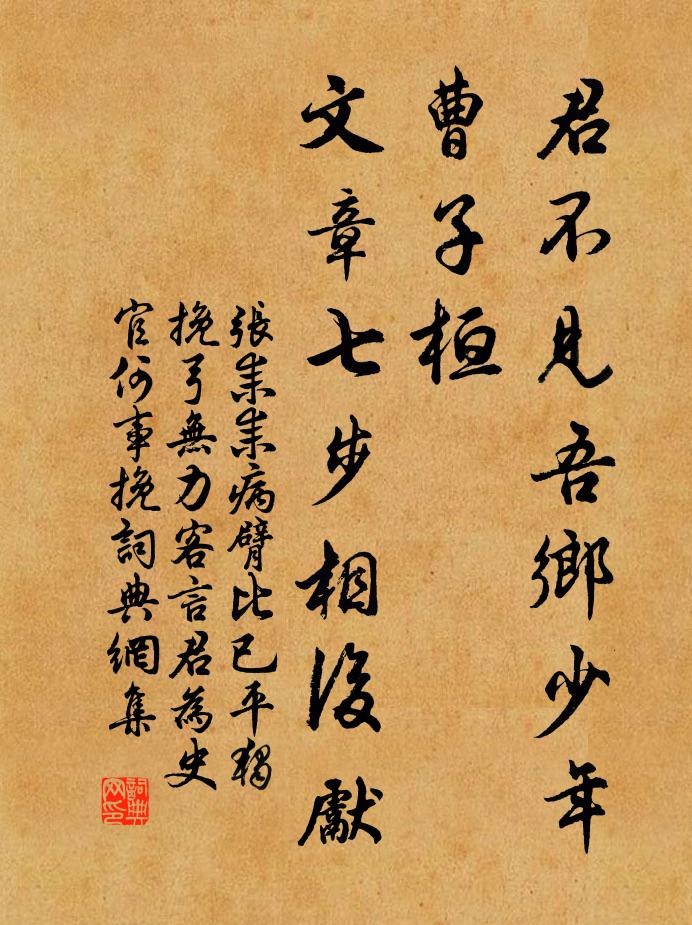 君不見吾鄉少年
曹子桓
文章七步相後獻
張耒耒病臂比已平獨
挽弓無力客言君為史
官何事挽詞典網集
詞典
网印